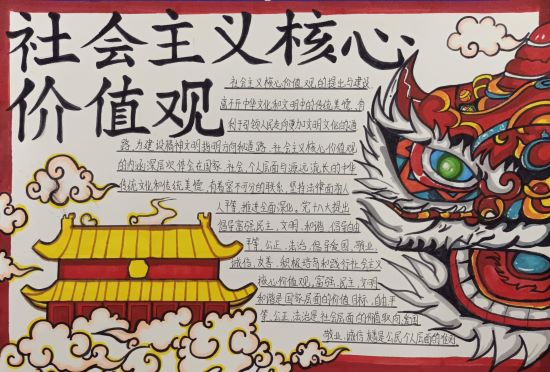 社会主义核心
价值观
社会主义核心价值观的提出与建设
离不开中华文化和文明中的传统美德,有
利于引领人民走向更加文明文化的道
路,为建设精神文明指明方向和道路,社会主义核心价值观
的内涵深层次体会在国家,社会,个人层面与源远流长的中华
传统文化和传统美德,有着密不可分的联系,坚持法律面前人
人平等,推进全面深化,党十八大提出
倡导富强,民主,文明,和谐,倡导自由
平等,公正,法治,倡导爱国,敬业,
诚信,友善,积极培育和践行社会主义
核心价值观,富强,民主,文明
和谐是国家层面的价值目标,自由,平
等,公正,法治是社会层面的价值取向,爱国
敬业,诚信,友善是公民个人层面的